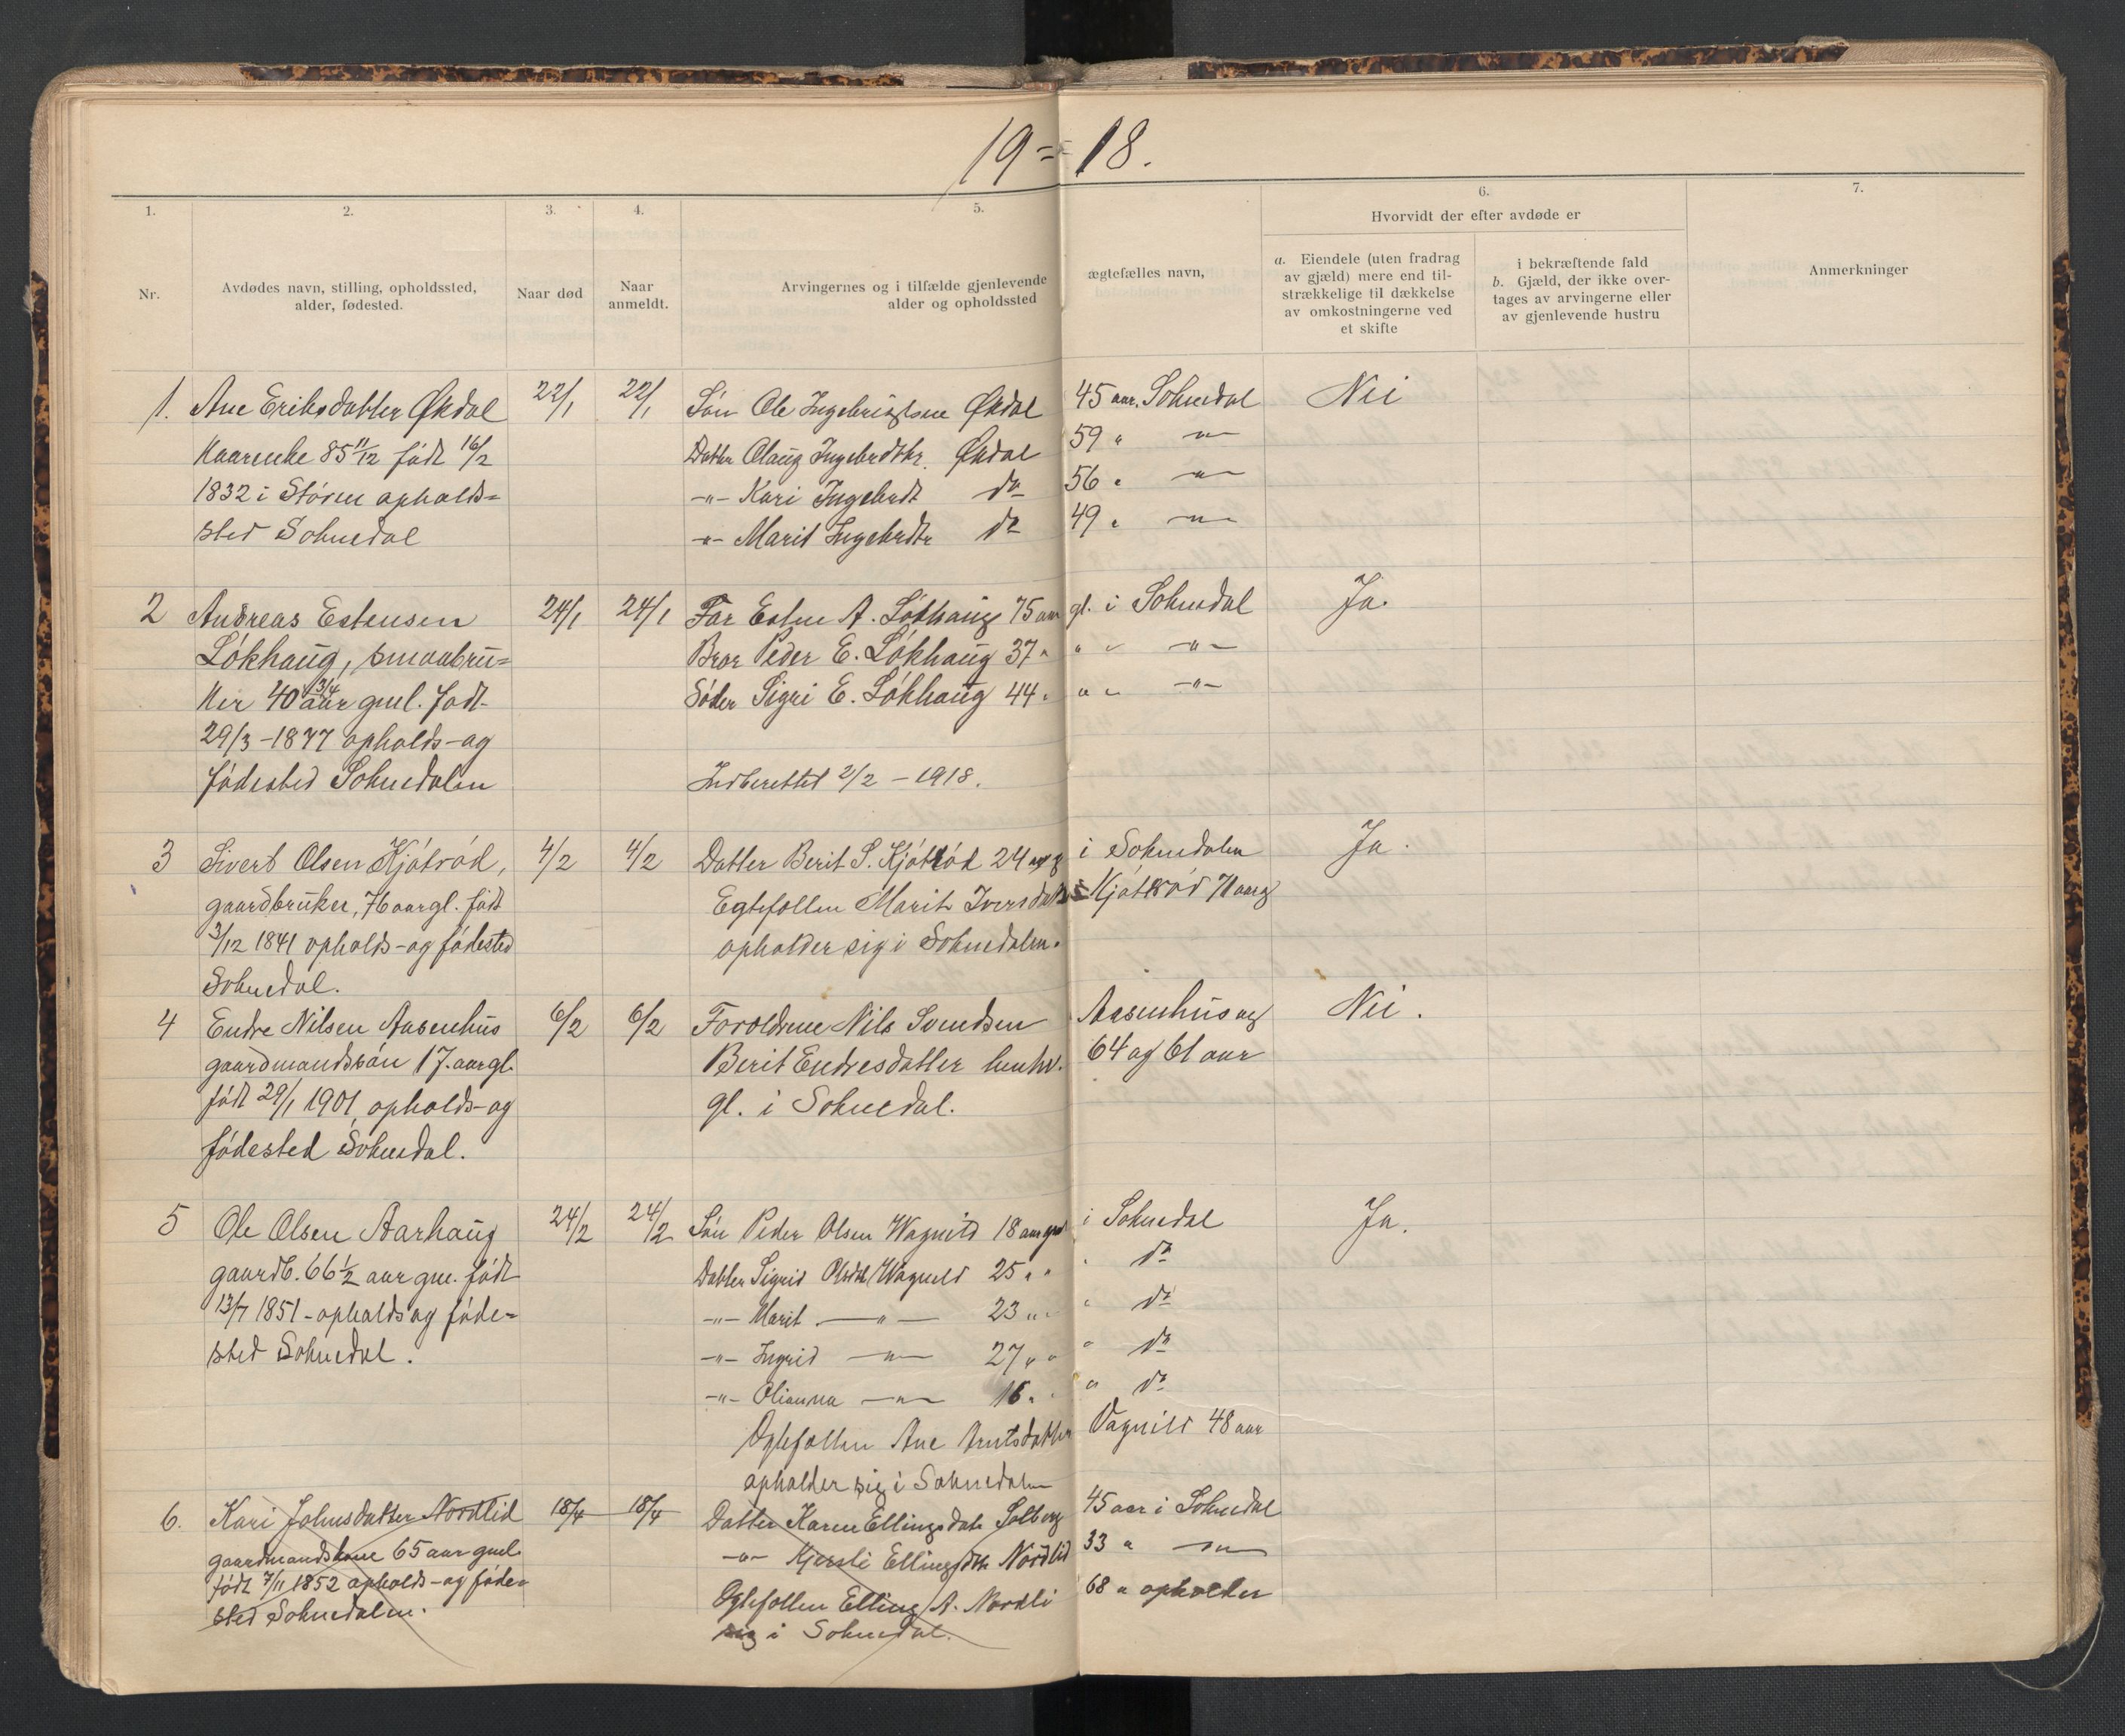 19 = 18.
1.
2.
3.
4.
5.
6.
7.
Nr.
Avdødes navn, stilling, opholdssted,
alder, fødested.
Naar død
Naar
anmeldt.
Arvingernes og i tilfælde gjenlevende ægtefælles navn,
alder og opholdssted
Hvorvidt der efter avdøde er
a. Eiendele (uten fradrag
av gjæld) mere end til-
strækkelige til dækkelse
av omkostningerne ved
et skifte
i bekræftende fald
b. Gjæld, der ikke over-
tages av arvingerne eller
av gjenlevende hustru
Anmerkninger
1. Ane Eriksdatter Økdal 22/1 22/1 Søn Ole Ingebrigtsen Økdal 45 aar. Soknedal Nei
Kaarenke 85 11/12 født 16/2 Datter Olaug Ingebrdtr. Økdal 59 " —"—
1832 i Støren opholds= —"— Kari Ingebrdt do 56 " —"—
sted Soknedal —"— Marit Ingebrdtr do 49 " —"—
2 Andreas Estensen 24/1 24/1 Far Esten A. Løkhaug 75 aar gl. i Soknedal Ja.
Løkhaug, smaabru= Bror Peder E. Løkhaug 37 " " " —"—
ker 40 3/4 aar gml. født Søder Sigri E. Løkhaug 44 " " " —"—
29/3 - 1877 opholds- og
fødested Soknedalen Indberettet 2/2 - 1918.
3 Sivert Olsen Kjøtrød, 4/2 4/2 Datter Berit S. Kjøtrød 24 aar g i Soknedalen Ja.
gaardbruker, 76 aar gl. født Egtefællen Marit Iversdatter Kjøtrød 71 aar g
3/12 1841 opholds- og fødested opholder sig i Soknedalen.
Soknedal.
4 Endre Nilsen Aasenhus 6/2 6/2 Forældrene Nils Svendsen Aasenhus og Nei.
gaardmandssøn 17. aar gl. Berit Endresdatter henhv. 64 og 61 aar
født 29/1 1901 opholds- og gl. i Soknedal.
fødested Soknedal.
5 Ole Olsen Aarhaug 24/2 24/2 Søn Peder Olsen Wagnild 18 aar gml i Soknedal Ja.
gaardb. 66 1/2 aar gm. født Datter Sigrid Olsdtr Wagnild 25 " " " do
13/7 1851 - opholds og føde= —"— Marit —"— 23 " " " do
sted Soknedal. —"— Ingrid —"— 27 " " " do
—"— Olianna —"— 16 " " " do
Egtefællen Ane Arntsdatter Vagnild 48 aar
opholder sig i Soknedalen
6. Kari Johnsdatter Nordlid 18/4 18/4 Datter Karen Ellingsdatr Solberg 45 aar i Soknedal
gaardmandskone 65 aar gml —"— Kjersti Ellingsdtr Nordlid 33 " —"—
født 7/11 1852 opholds- og føde= Egtefællen Elling A. Nordli 68 " opholder
sted Soknedalen. sig i Soknedal.